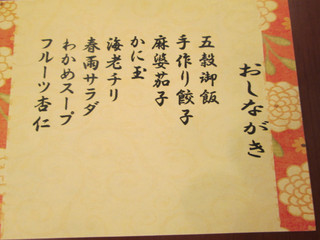 おしながき
五穀御飯
手作り餃子
麻婆茄子
かに玉
海老チリ
春雨サラダ
わかめスープ
フルーツ杏仁